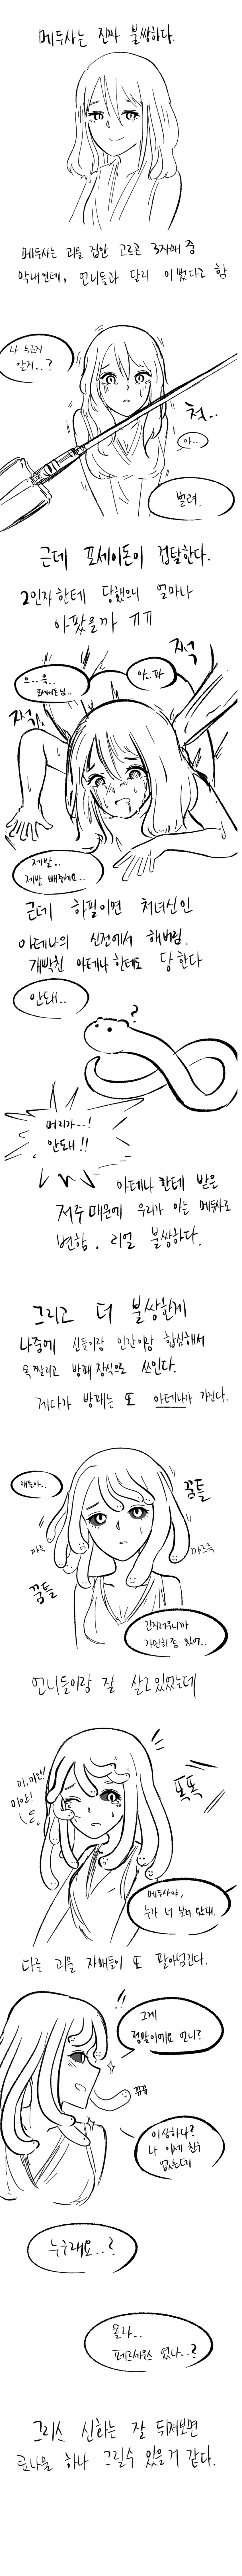 메두사는 진짜 불쌍하다.
메두사는 괴물 집안 고르곤 3자매 중
막내인데, 언니들과 달리 이뻤다고 함
나 누군지
알지..?
척..
아..
벌려.
근데 포세이돈이 겁탈한다.
2인자한테 당했으니 얼마나
아팠을까 ㅠㅠ
으..윽..
포세이돈님..
아..파
쩍
쩍
제발..
제발 빼주세요..
근데 하필이면 처녀신인
아테나의 신전에서 해버림.
개빡친 아테나한테도 당한다
안돼..
?
머리가--!
안돼!!
아테나한테 받은
저주 때문에 우리가 아는 메두사로
변함. 리얼 불쌍하다.
그리고 더 불쌍한게
나중에 신들이랑 인간이랑 합심해서
목 짤리고 방패 장식으로 쓰인다.
게다가 방패는 또 아테나가 가진다.
얘들아..
꿈틀
꿈틀
간지러우니까
가만히 좀 있어..
언니들이랑 잘 살고있었는데
미,미안!!
미안!
똑똑
메두사야,
누가 너 보러 왔대.
다른 괴물 자매들이 또 팔아넘긴다.
!!
그게
정말이에요 언니?
뀨뀨
이상하다?
나 이제 친구
없는데
누구래요..?
몰라..
페르세우스 였나..?
그리스 신화는 잘 뒤져보면
료나물 하나 그릴수 있을거 같다.